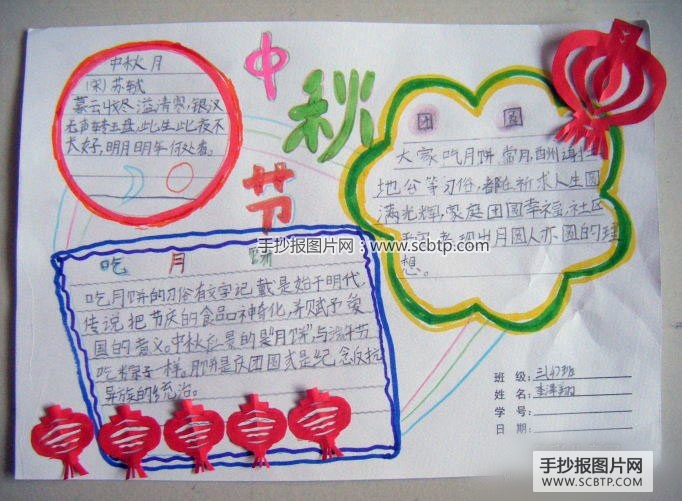 中秋节
中秋月
(宋)苏轼
暮云收尽溢清寒,银汉
无声转玉盘,此生此夜不
长好,明月明年何处看。
团圆
大家吃月饼,赏月,酬谢土
地公等习俗,都在祈求人生圆
满光辉,家庭团圆幸福,社区
表现出月圆人亦圆的理
想。
手抄报图片网:www.scbtp.com
吃月饼
吃月饼的习俗有文字记载是始于明代,
传说把节庆的食品神话化,并赋予爱
国的意义。中秋应景的是"月饼"与端午节
吃粽子一样。月饼是庆团圆或是纪念反抗
异族的统治。
班级:三(7)班
姓名:李泽翔
学号:
日期:
手抄报图片网
WWW.SCBTP.COM